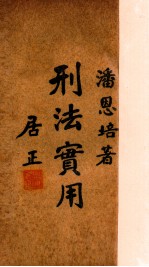 潘恩培著
刑法實用
居正